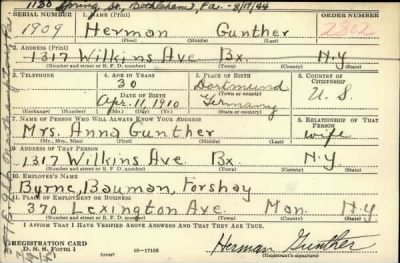 1130 Spring St., Bethlehem, Pa. - 8/17/44
SERIAL NUMBER 1. NAME (Print) ORDER NUMBER
1909 Herman Gunther 2802
(First) (Middle) (Last)
2. ADDRESS (Print)
1317 Wilkins Ave Bx. N.Y
(Number and street or R. F. D. number) (Town) (County) (State)
3. TELEPHONE 4. AGE IN YEARS 5. PLACE OF BIRTH 6. COUNTRY OF CITIZENSHIP
30 Dortmund
DATE OF BIRTH (Town or county)
Apr. 11, 1910 Germany U. S.
(Exchange) (Number) (Mo.) (Day) (Yr.) (State or country)
7. NAME OF PERSON WHO WILL ALWAYS KNOW YOUR ADDRESS 8. RELATIONSHIP OF THAT PERSON
Mrs. Anna Gunther wife
(Mr., Mrs., Miss) (First) (Middle) (Last)
9. ADDRESS OF THAT PERSON
1317 Wilkins Ave. Bx. N.Y.
(Number and street or R. F. D. number) (Town) (County) (State)
10. EMPLOYER'S NAME
Byrne, Bauman, Forshay
11. PLACE OF EMPLOYMENT OR BUSINESS
370 Lexington Ave Man. N.Y.
(Number and street or R. F. D. number) (Town) (County) (State)
I AFFIRM THAT I HAVE VERIFIED ABOVE ANSWERS AND THAT THEY ARE TRUE.
REGISTRATION CARD
D. S. S. Form 1 16-17105 Herman Gunther
(Registrant's signature)